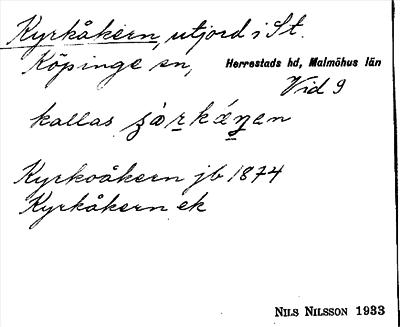 Kyrkåkern, utjord i St.
Köpinge sn, Herrestads hd, Malmöhus län
Vid 9
kallas
Kyrkoåkern jb 1874
Kyrkåkern ek
NILS NILSSON 1933